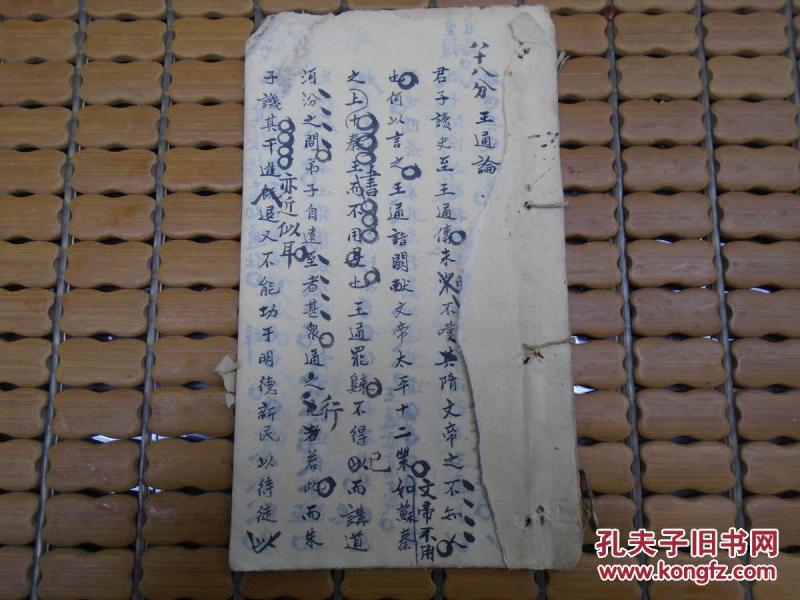 八十八分 王通論
君子讀史至王通傳未嘗不嘆其隋文帝之不知人
也何以言之王通詣闕獻文帝太平十二策如蘇秦
文帝不用
之上十秦王而不用是也王通罷歸不得以而講道
書
已
河汾之間弟子自遠至者甚衆通之見者若此而朱
行
子譏其干進 退又不能功于明德新民以待徒
亦近似耳
孔夫子旧书网
www.kongfz.com